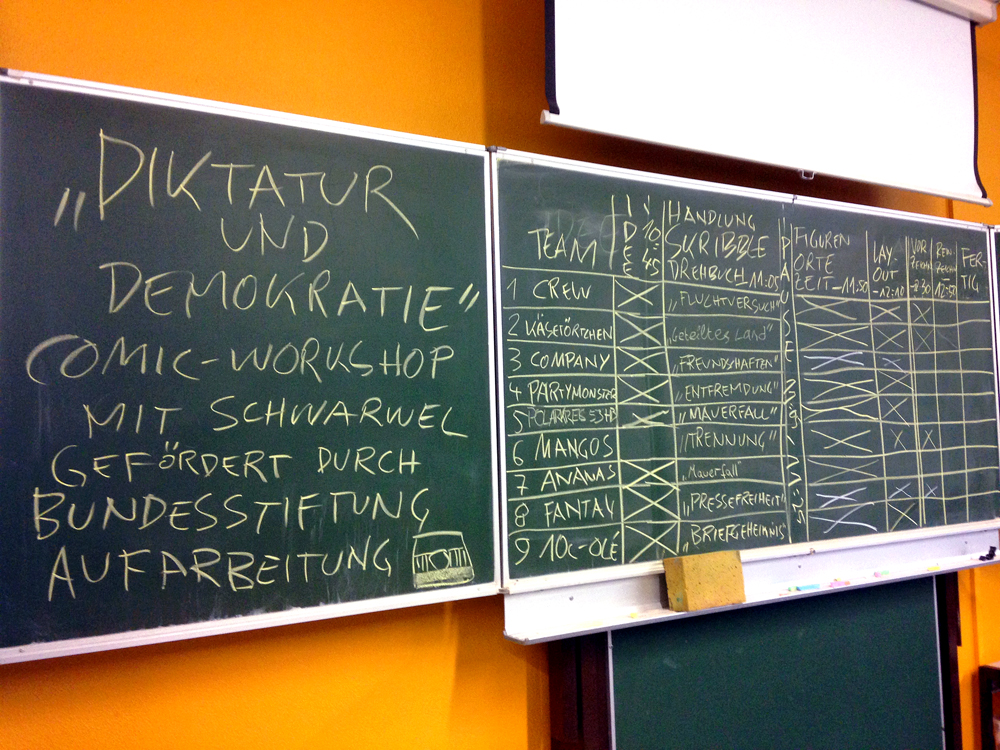 „DIKTATUR
UND
DEMOKRATIE"
COMIC-WORKSHOP
MIT SCHWARWEL
GEFÖRDERT DURCH
BUNDESSTIFTUNG
AUFARBEITUNG
TEAM
IDEE
10:45
HANDLUNG
SKRIBBLE
DREHBUCH 11:05
PAUSE
FIGUREN
ORTE
ZEIT -11:50
LAY-
OUT
-12:10
VOR
REIN
12:50
FER-
TIG
1 CREW „FLUCHTVERSUCH"
2 KÄSETÖRTCHEN „Geteiltes Land"
3 COMPANY „FREUNDSCHAFTEN"
4 PARTYMONSTER „ENTFREMDUNG"
5 „MAUERFALL"
6 MANGOS „TRENNUNG"
7 ANANAS „Mauerfall"
8 FANTAY „PRESSEFREIHEIT"
9 10c-OLÉ „BRIEFGEHEIMNIS"